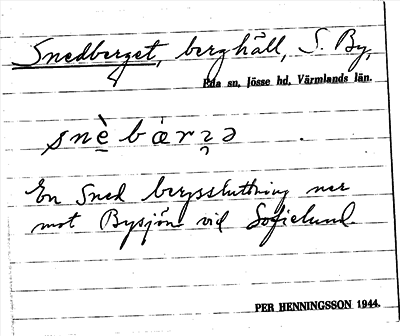 Snedberget, berghäll, S. By,
Eda sn, Jösse hd, Värmlands län.
snè̱ bœ́rʒ̯ə .
En sned bergssluttning ner
mot Bysjön vid Sofielund.
PER HENNINGSSON 1944.